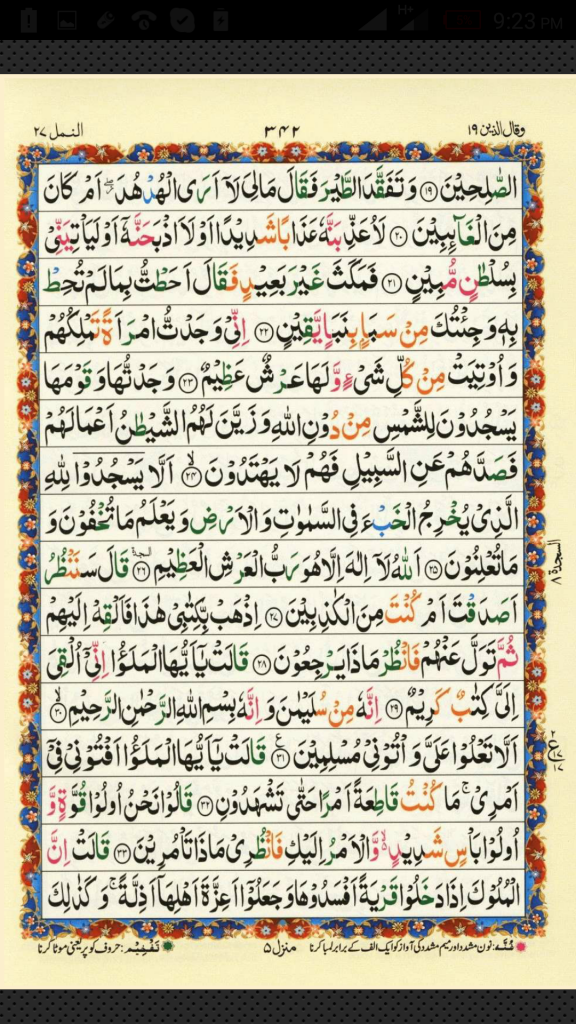 9:23 PM
وقال الذین ۱۹
۳۴۲
النمل ۲۷
الصّٰلِحِیْنَ ۝۱۹ وَتَفَقَّدَ الطَّیْرَ فَقَالَ مَالِیَ لَاۤ اَرَی الْهُدْهُدَ ۖ اَمْ كَانَ
مِنَ الْغَآئِبِیْنَ ۝۲۰ لَاُعَذِّبَنَّهٗ عَذَابًا شَدِیْدًا اَوْ لَاۡاَذْبَحَنَّهٗۤ اَوْ لَیَاْتِیَنِّیْ
بِسُلْطٰنٍ مُّبِیْنٍ ۝۲۱ فَمَكَثَ غَیْرَ بَعِیْدٍ فَقَالَ اَحَطْتُّ بِمَا لَمْ تُحِطْ
بِهٖ وَجِئْتُكَ مِنْ سَبَاٍۭ بِنَبَاٍ یَّقِیْنٍ ۝۲۲ اِنِّیْ وَجَدْتُّ امْرَاَةً تَمْلِكُهُمْ
وَاُوْتِیَتْ مِنْ كُلِّ شَیْءٍ وَّلَهَا عَرْشٌ عَظِیْمٌ ۝۲۳ وَجَدْتُّهَا وَقَوْمَهَا
یَسْجُدُوْنَ لِلشَّمْسِ مِنْ دُوْنِ اللهِ وَزَیَّنَ لَهُمُ الشَّیْطٰنُ اَعْمَالَهُمْ
فَصَدَّهُمْ عَنِ السَّبِیْلِ فَهُمْ لَا یَهْتَدُوْنَ ۝۲۴ۙ اَلَّا یَسْجُدُوْا لِلّٰهِ
الَّذِیْ یُخْرِجُ الْخَبْءَ فِی السَّمٰوٰتِ وَالْاَرْضِ وَیَعْلَمُ مَا تُخْفُوْنَ وَ
مَا تُعْلِنُوْنَ ۝۲۵ اَللهُ لَاۤ اِلٰهَ اِلَّا هُوَ رَبُّ الْعَرْشِ الْعَظِیْمِ ۝۲۶ السجدة قَالَ سَنَنْظُرُ
السجدة ۸
اَصَدَقْتَ اَمْ كُنْتَ مِنَ الْكٰذِبِیْنَ ۝۲۷ اِذْهَبْ بِّكِتٰبِیْ هٰذَا فَاَلْقِهْ اِلَیْهِمْ
ثُمَّ تَوَلَّ عَنْهُمْ فَانْظُرْ مَاذَا یَرْجِعُوْنَ ۝۲۸ قَالَتْ یٰۤاَیُّهَا الْمَلَؤُا اِنِّیْۤ اُلْقِیَ
اِلَیَّ كِتٰبٌ كَرِیْمٌ ۝۲۹ اِنَّهٗ مِنْ سُلَیْمٰنَ وَاِنَّهٗ بِسْمِ اللهِ الرَّحْمٰنِ الرَّحِیْمِ ۝۳۰ۙ
اَلَّا تَعْلُوْا عَلَیَّ وَاْتُوْنِیْ مُسْلِمِیْنَ ۝۳۱ع قَالَتْ یٰۤاَیُّهَا الْمَلَؤُا اَفْتُوْنِیْ فِیْۤ
۲ ع ۷ ۱۷
اَمْرِیْ ۚ مَا كُنْتُ قَاطِعَةً اَمْرًا حَتّٰی تَشْهَدُوْنِ ۝۳۲ قَالُوْا نَحْنُ اُولُوْا قُوَّةٍ وَّ
اُولُوْا بَاْسٍ شَدِیْدٍ ۙ وَّالْاَمْرُ اِلَیْكِ فَانْظُرِیْ مَاذَا تَاْمُرِیْنَ ۝۳۳ قَالَتْ اِنَّ
الْمُلُوْكَ اِذَا دَخَلُوْا قَرْیَةً اَفْسَدُوْهَا وَجَعَلُوْۤا اَعِزَّةَ اَهْلِهَاۤ اَذِلَّةً ۚ وَكَذٰلِكَ
غُنّہ: نون مشدد اور میم مشدد کی آواز کو ایک الف کے برابر لمبا کرنا
منزل ۵
تفخیم: حروف کو پُر یعنی موٹا کرنا